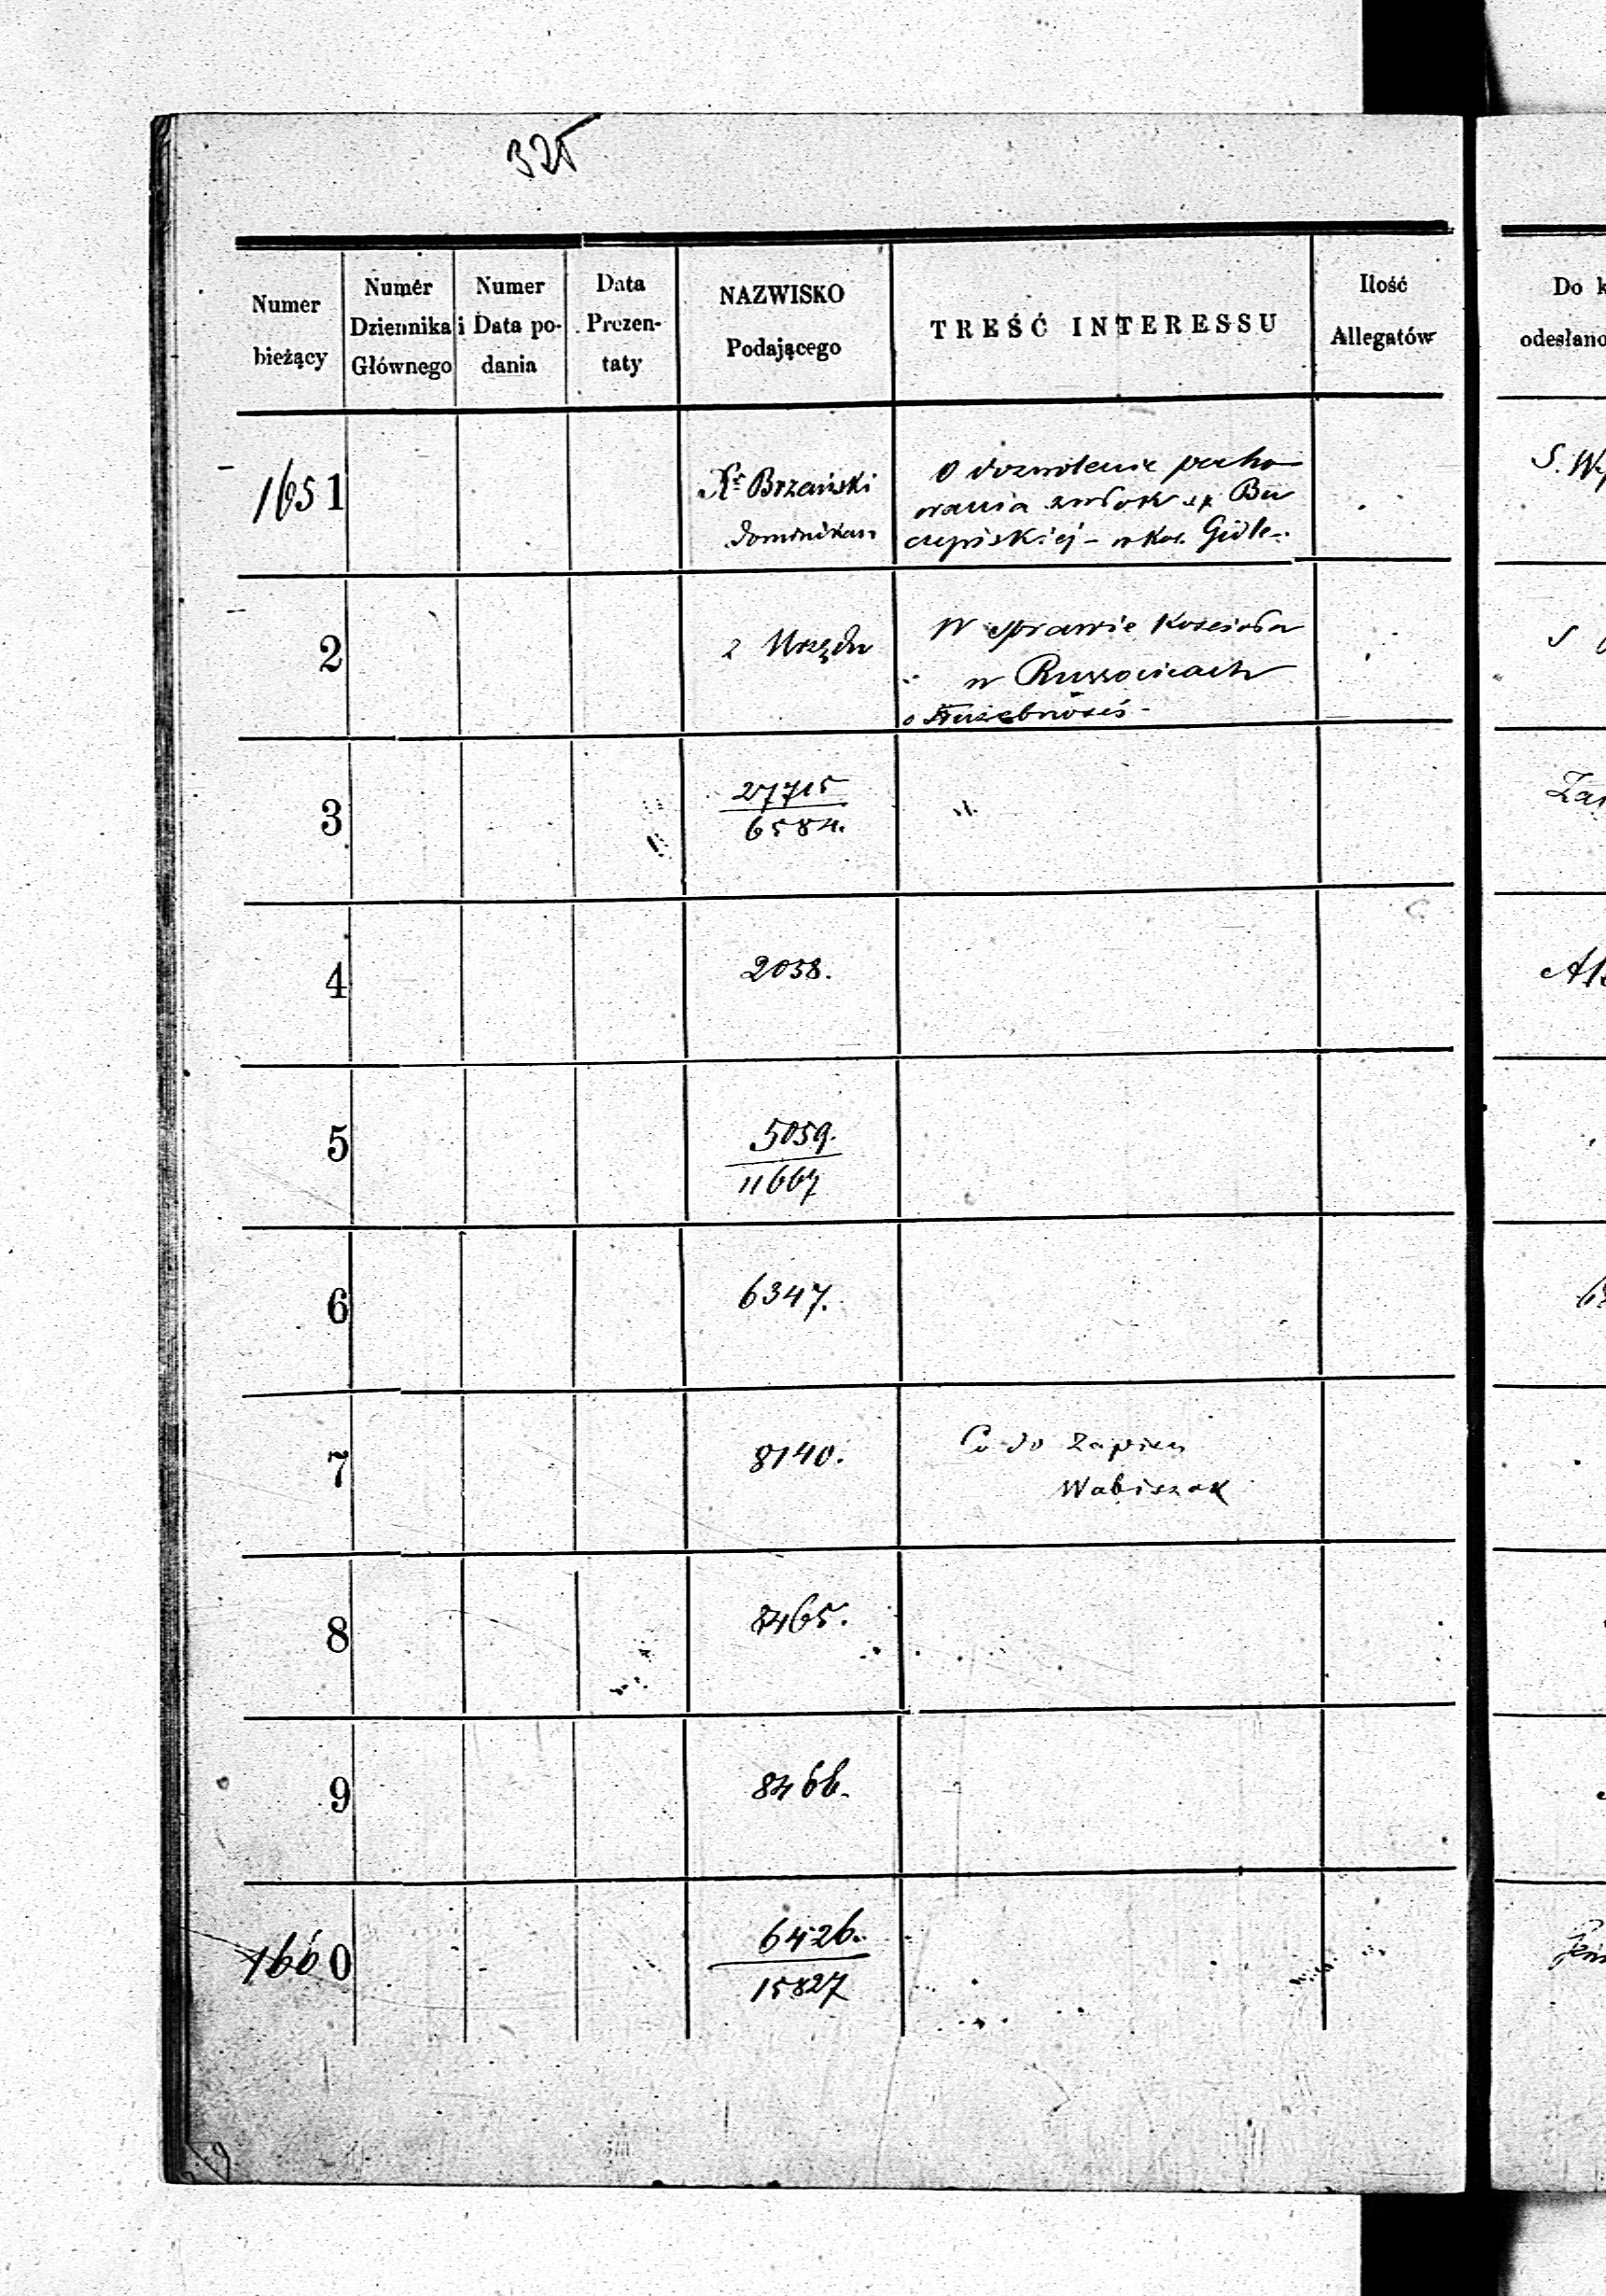 325
Numer bieżący
Numer Dziennika Głównego
Numer i Data podania
Data Prezentaty
NAZWISKO Podającego
TREŚĆ INTERESSU
Ilość Allegatów
Do k
odesłano
1651
Xs Brzański
Dominikan
O dozwolenie pocho
wania zwłok sp Bu
czyńskiej - w Koś. Gidle-
S. Wy
2
z Urzędu
W sprawie Kościoła
w Russocicach
o służebność -
S
3
27715
6584.
Zar
4
2058.
5
5059.
11667
6
6347.
7
8140.
Co do zapisu
Wabiszak
8
8465.
9
8466.
1660
6426.
15827